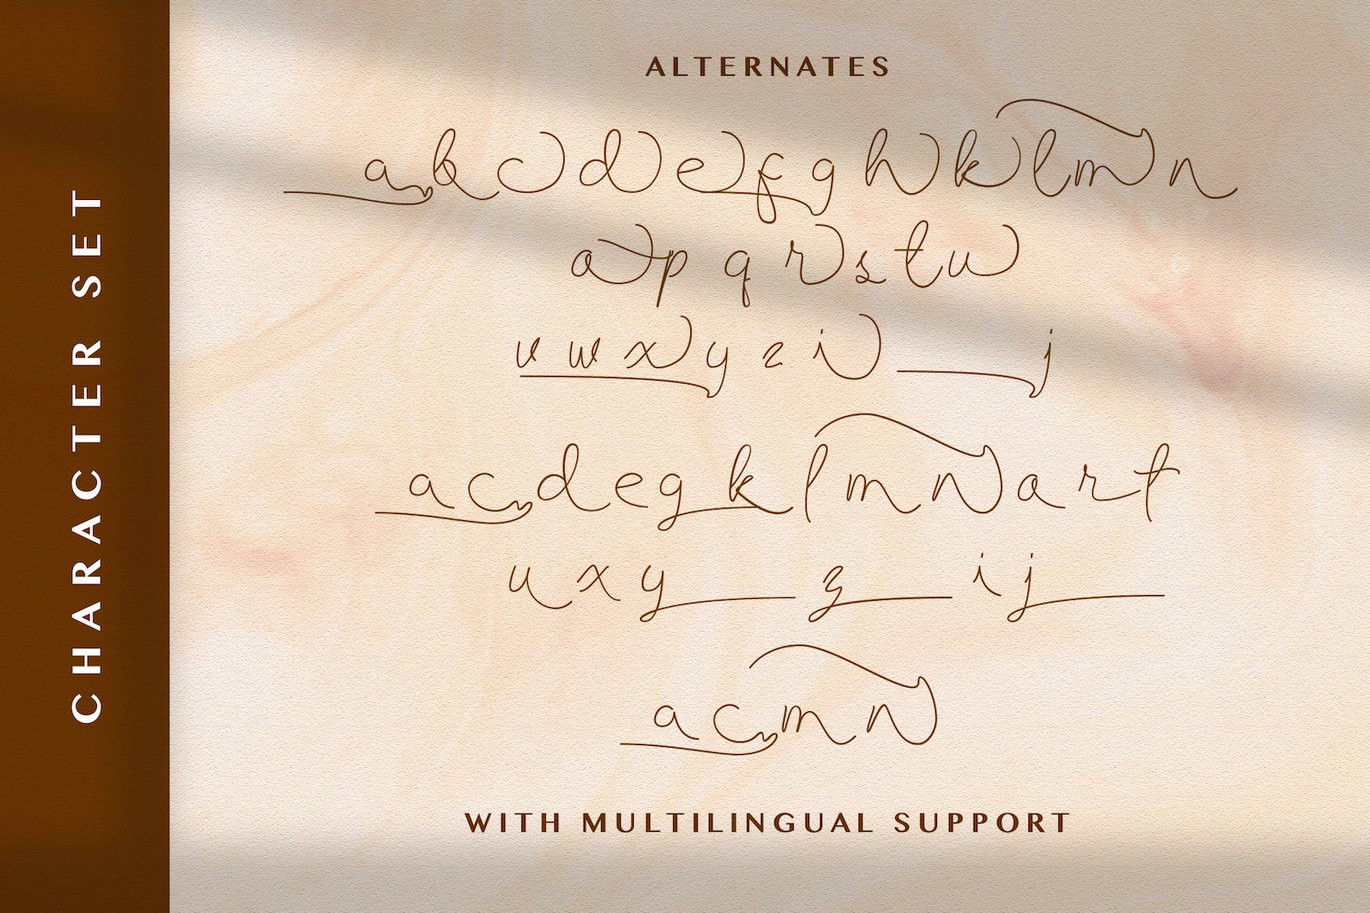 CHARACTER SET
ALTERNATES
a b c d e f g h k l m n
o p q r s t u
v w x y z i j
a c d e g k l m n o r t
u x y z i j
a c m n
WITH MULTILINGUAL SUPPORT